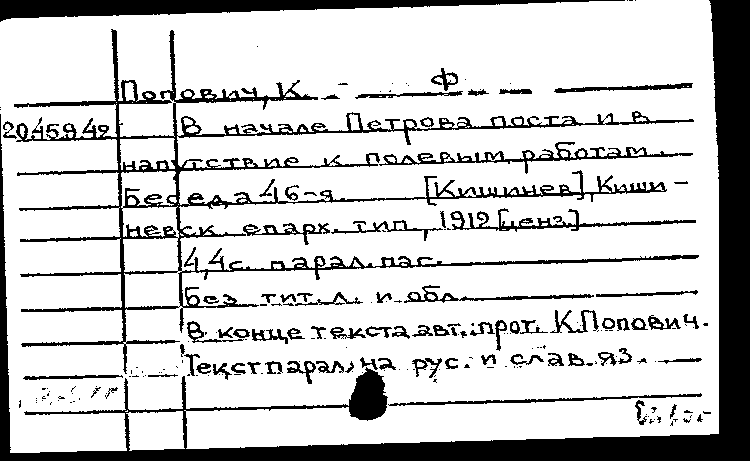 Попович, К. Ф
20.45.9.42 В начале Петрова поста и в
напутствие к полевым работам.
Беседа 46-я. [Кишинев], Киши-
невск. епарх. тип., 1912 [ценз.]
4,4 с. парал. паг.
Без тит. л. и обл.
В конце текста авт.: прот. К. Попович.
Текст парал. на рус. и слав. яз.